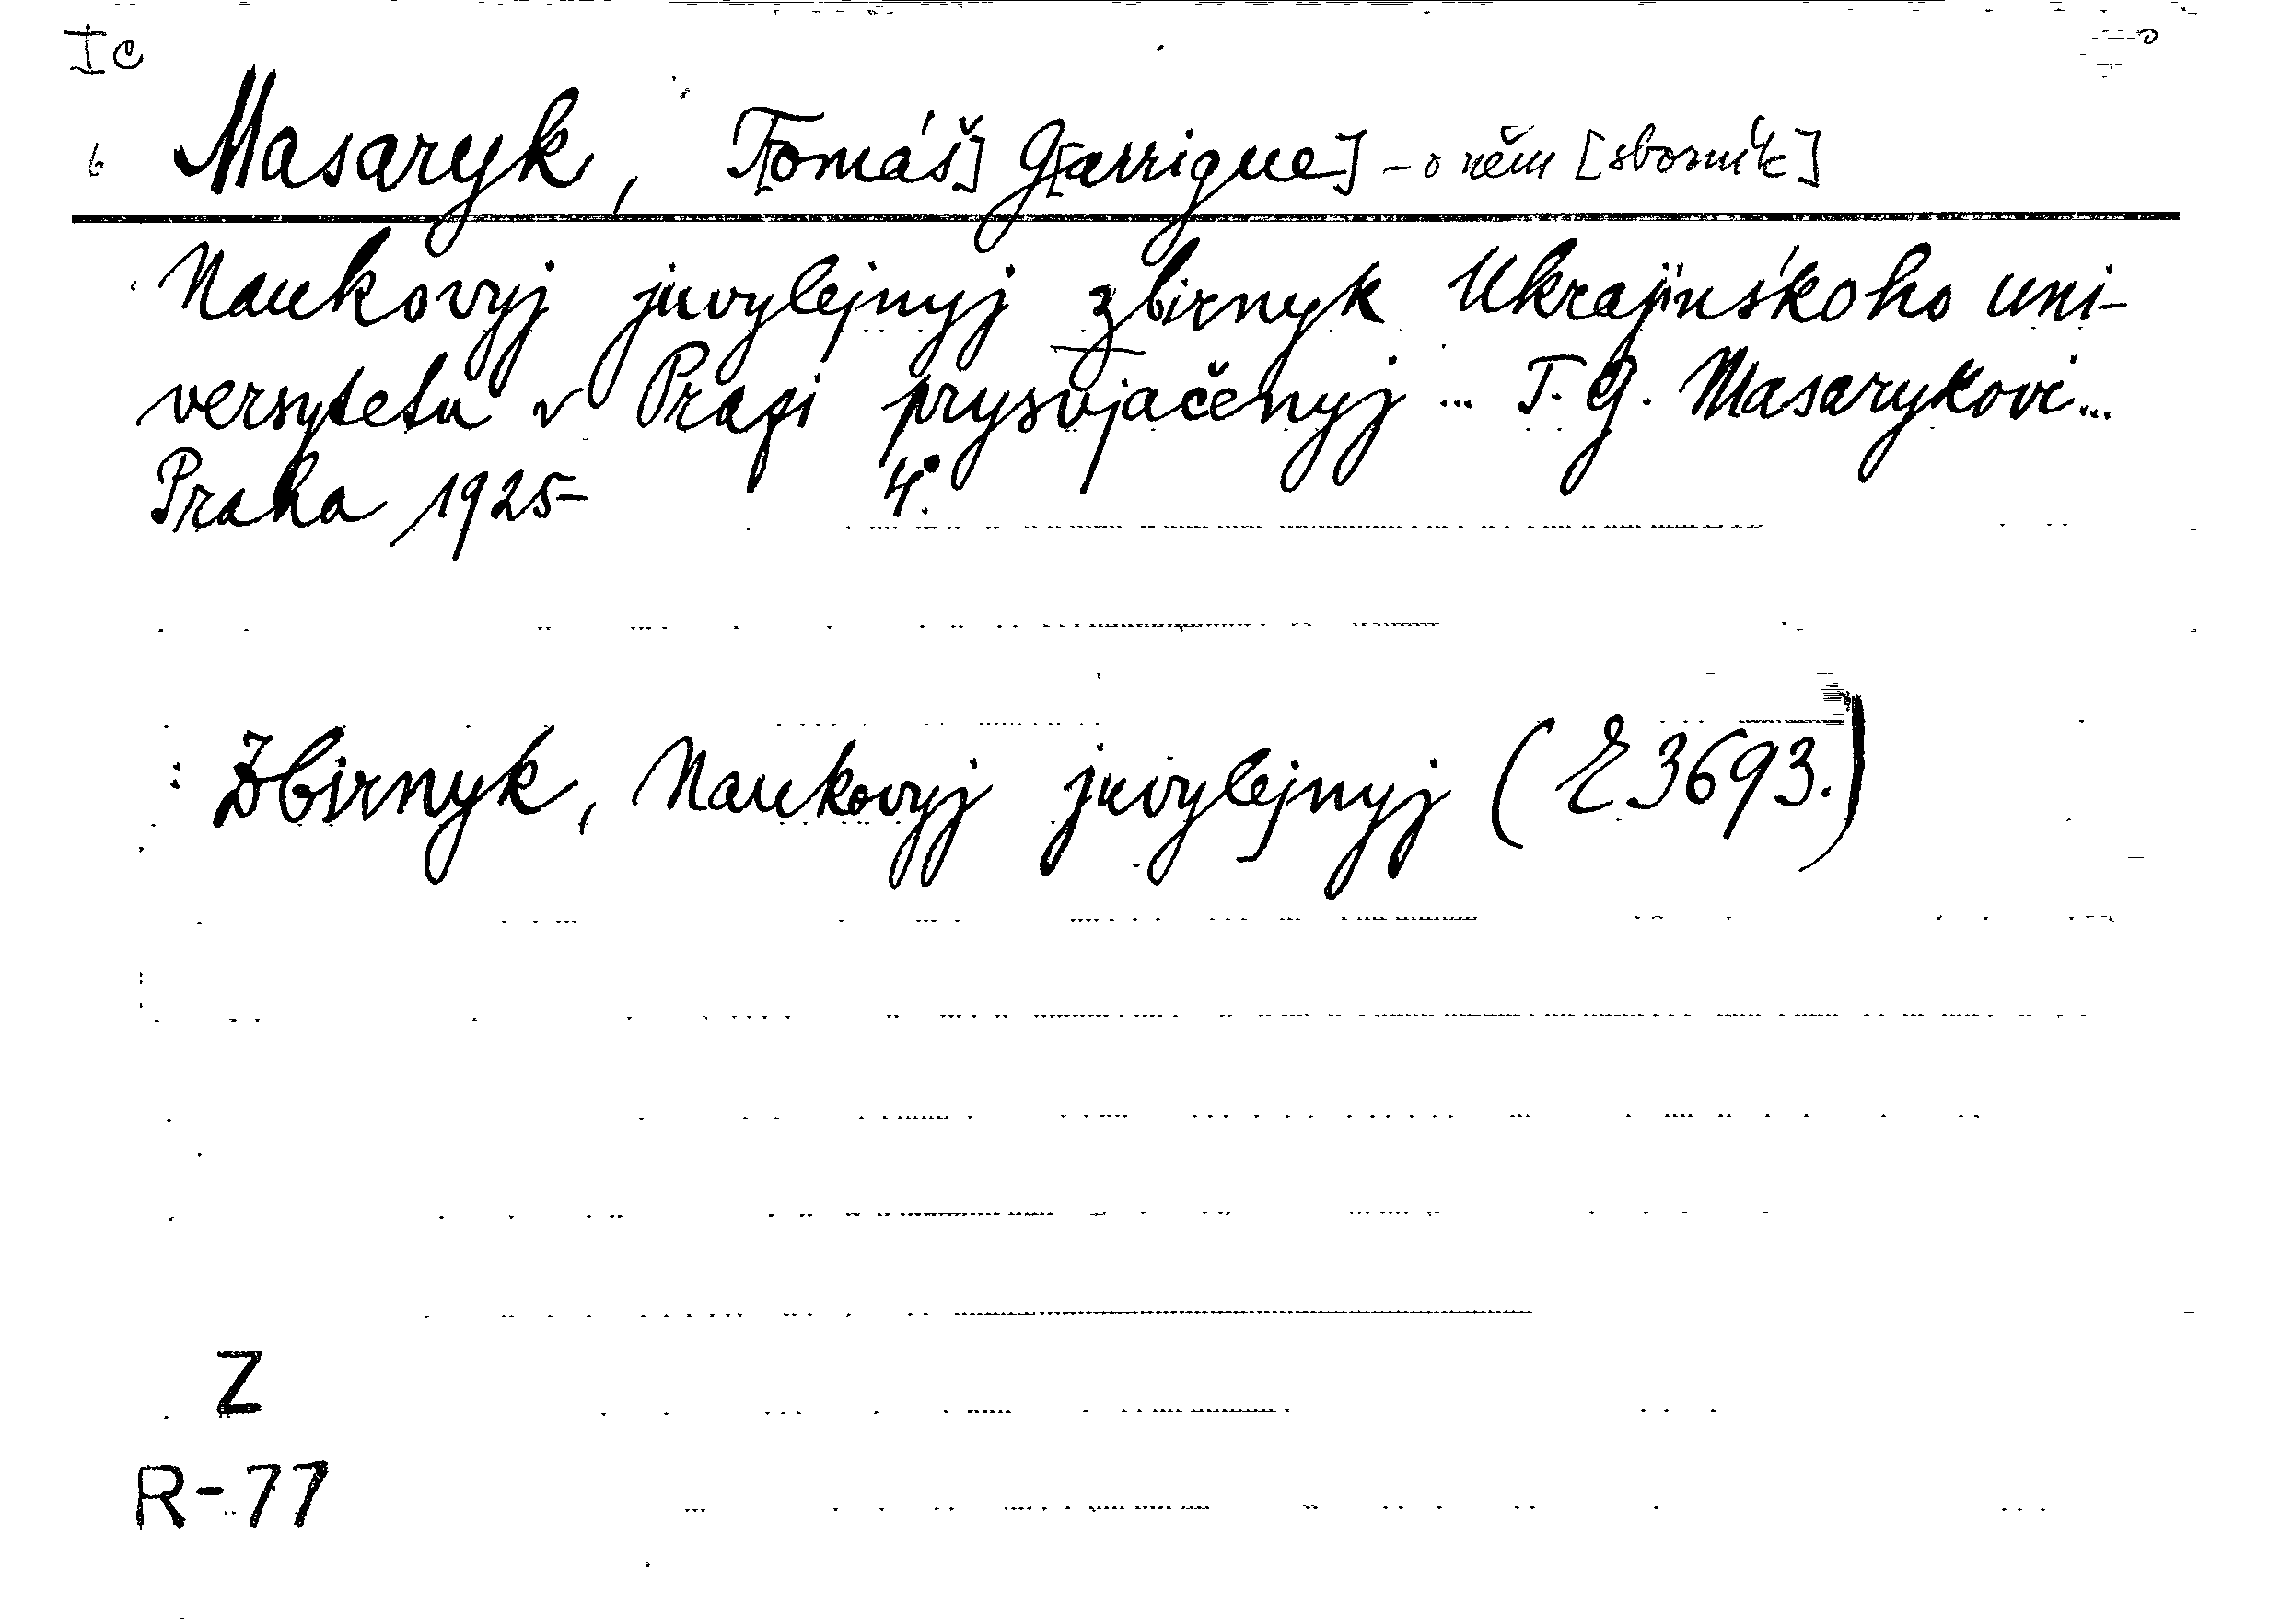 Ic
6 Masaryk, T[omáš] G[arrigue] - o něm [sborník]
Naukovyj juvylejnyj zbirnyk Ukrajinśkoho uni-
versytetu v Prazi prysvjačenyj ... T. G. Masarykovi...
Praha 1925- 4°.
Zbirnyk, Naukovyj juvylejnyj (E 3693.)
Z
R-77